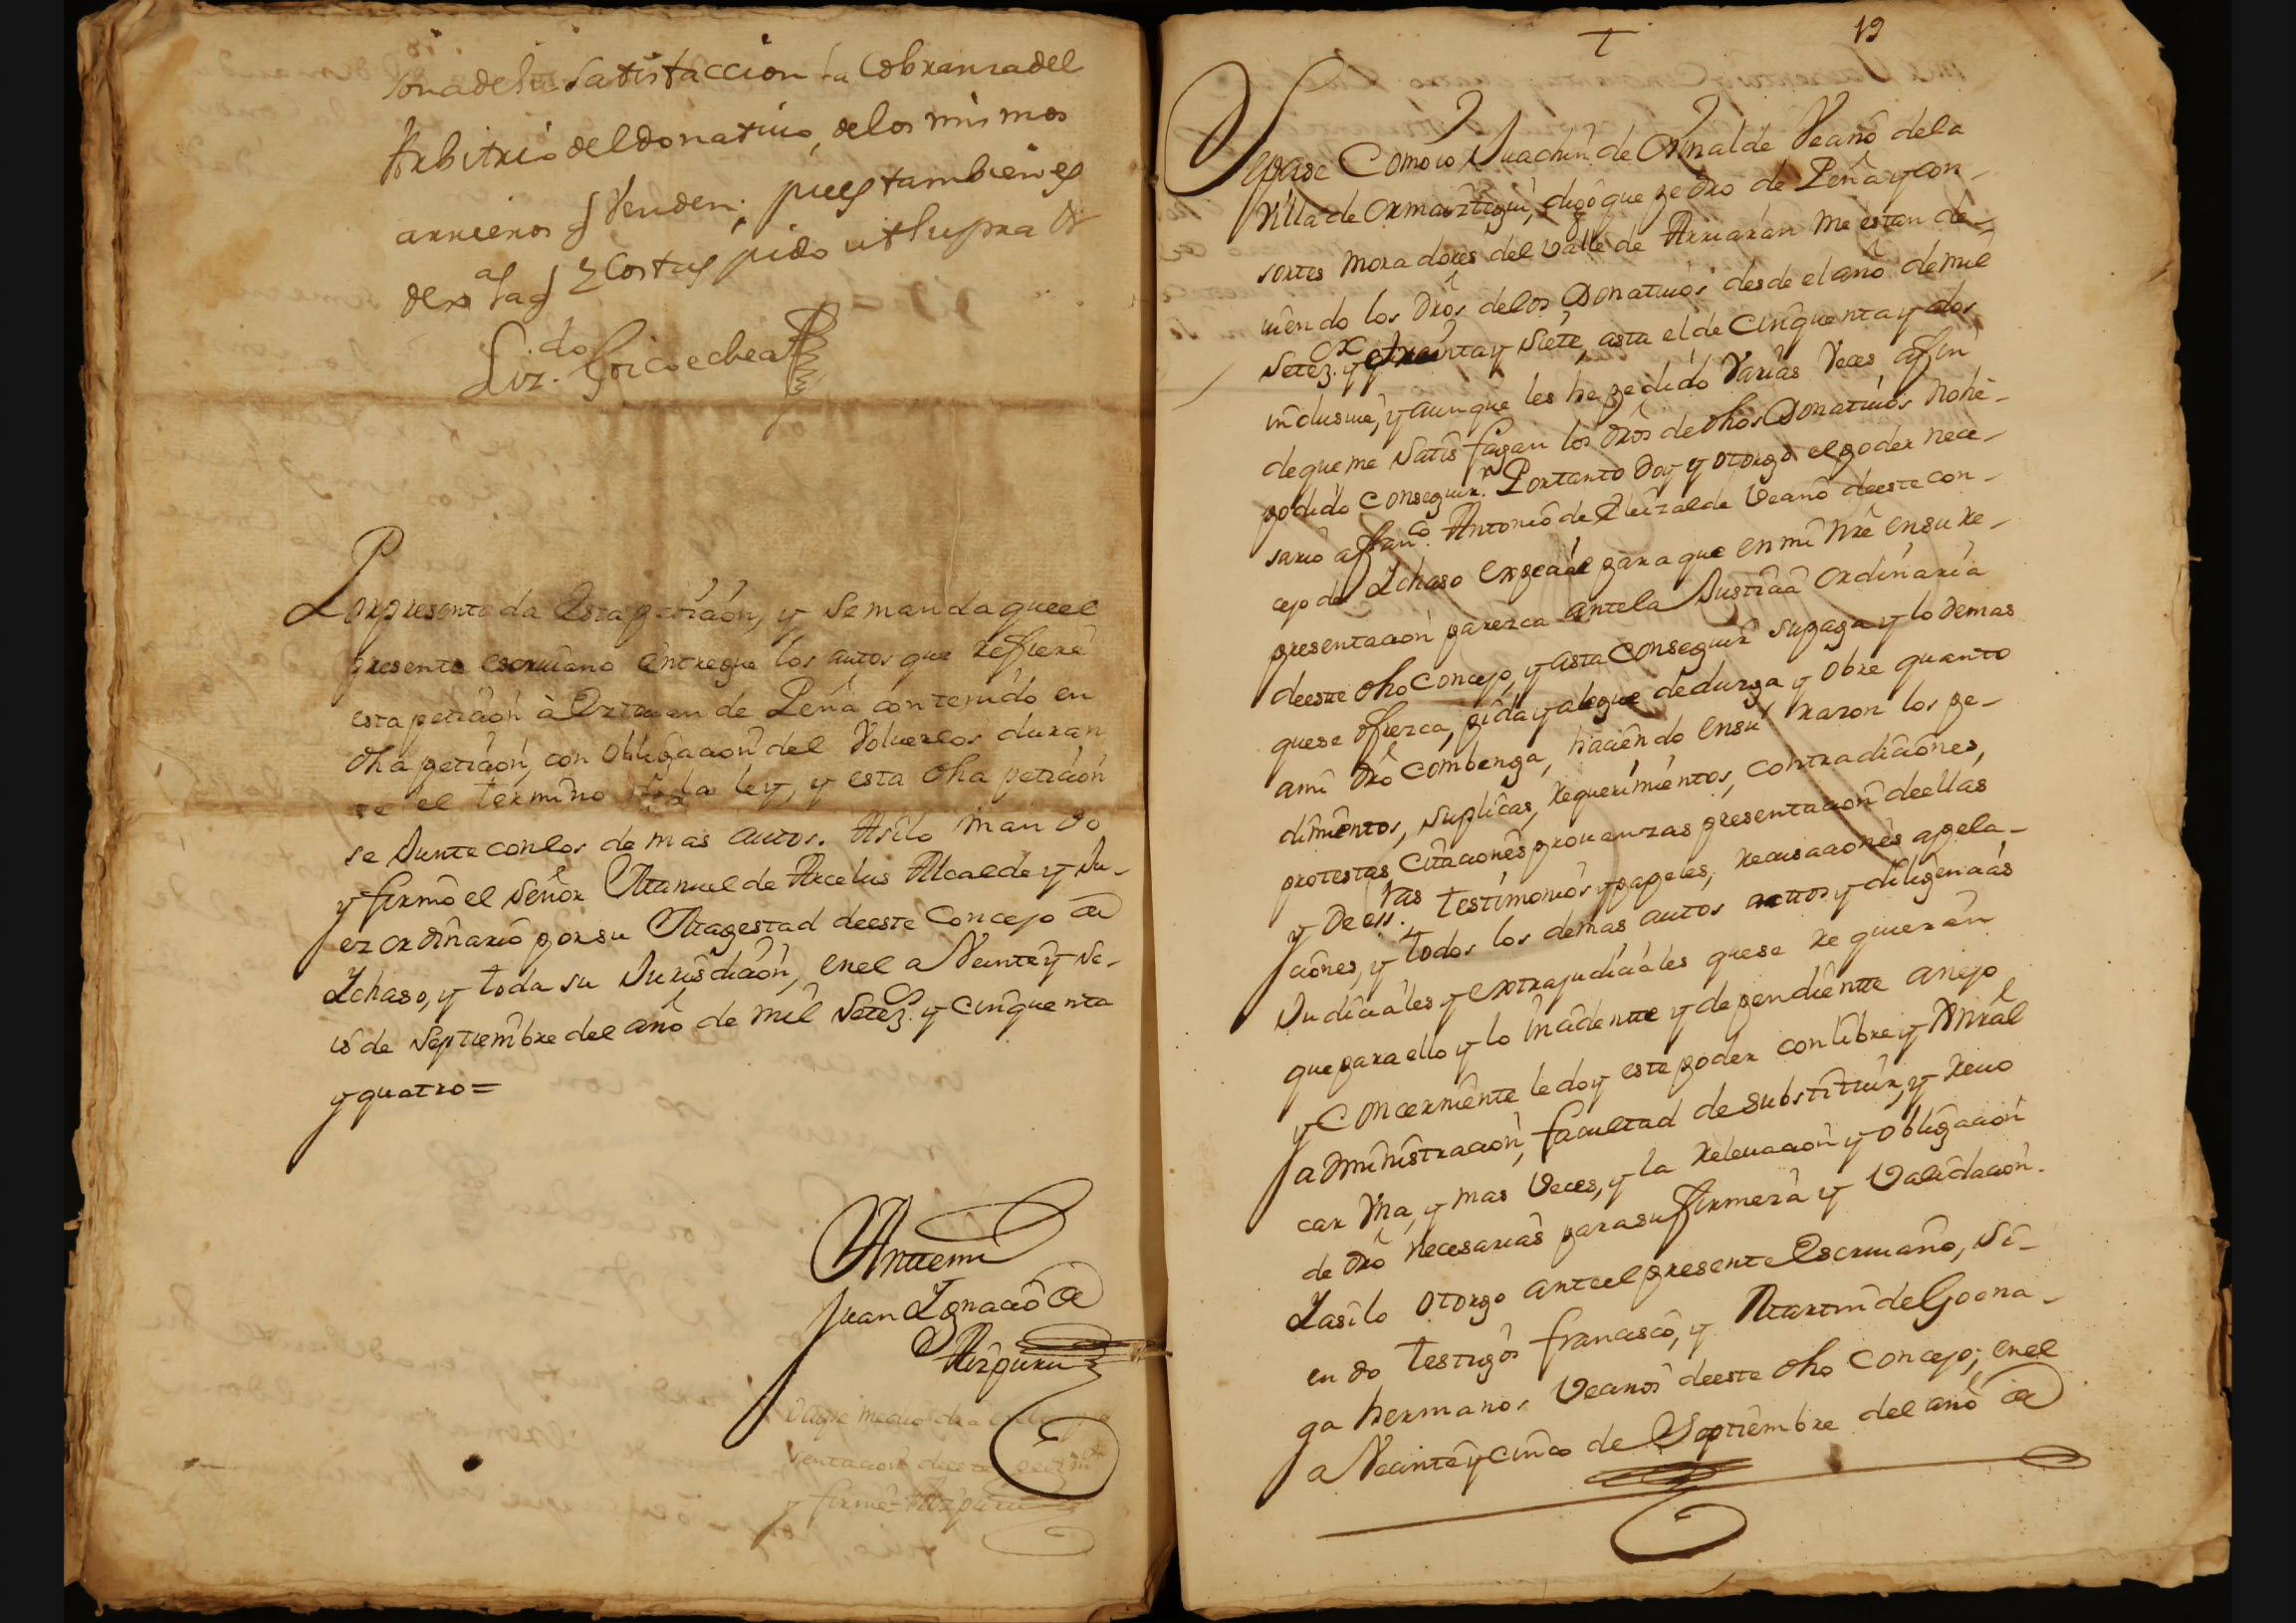 sona de su satisfaccion la Cobranza del
Arbitrio del donativo, de los mismos
arrieros q Venden; pues tambien es
dexas pag y Costas pido ut supra &
Liz.do Goicoechea
Por presentada Esta peticion, y se manda que el
presente escriuano entregue los autos que refiere
esta peticion à de Peña contenido en
dha peticion, con obligacion del Voluerlos duran
te el termino la ley, y esta dha peticion
se Junte con los de mas autos. Asilo mando
y firmó el señor Manuel de Arcelus Alcalde y Ju-
ez ordinario por su Magestad deeste Concejo de
Ichaso, y toda su Jurisdicion, en el a Veinte y se-
is de Septiembre del año de mil Setez.s y cinquenta
y quatro=
Antemi
Juan Ignacio de
Aizpuru
y firmé Aizpuru
19
Sepase Como io Juachin de Ornalde Vecino de la
Villa de Ormaiztegui, digo que pedro de Peña y con-
sortes moradores del valle de Arriaran me estan de-
uiendo los dros de los Donatiuos desde el año de mil
Setez.s y treinta y siete, asta el de Cinquenta y dos
inclusiue, y aunque les he pedido Varias Veces afin
de que me satisfagan los dros de dhos Donatiuos no he-
podido conseguir. Portanto doy y otorgo el poder nece-
sario a Fran.co Antonio de Eleizalde Vecino deeste con-
cejo de Ichaso expecial para que en mi nre en su re-
presentacion parezca ante la Justicia ordinaria
deeste dho Concejo, y asta conseguir su paga y lo demas
que se ofrezca, pida y alegue deduzga y obre quanto
ami dro combenga, haciendo en su razon los pe-
dimientos, suplicas, requerimientos, contradiciones,
protestas, Citaciones prouanzas presentacion deellas
y de ess.ras testimonios y papeles, recusaciones apela-
ciones, y todos los demas autos acttos y diligencias
Judiciales y extrajudiciales que se requieran
que para ello y lo incidentte y dependientte anejo
y Concerniente le doy este poder con libre y Xnral
administracion, facultad de substituir, y reuo
car Vna, y mas Veces, y la releuacion y obligacion
de dro necesarias para su firmeza y Validacion.
I asilo otorgo ante el presente Escriuano, si-
endo testigos francisco, y Martin de Goena-
ga hermanos Vecinos deeste dho concejo; en el
a Veinte y cinco de Septiembre del año de